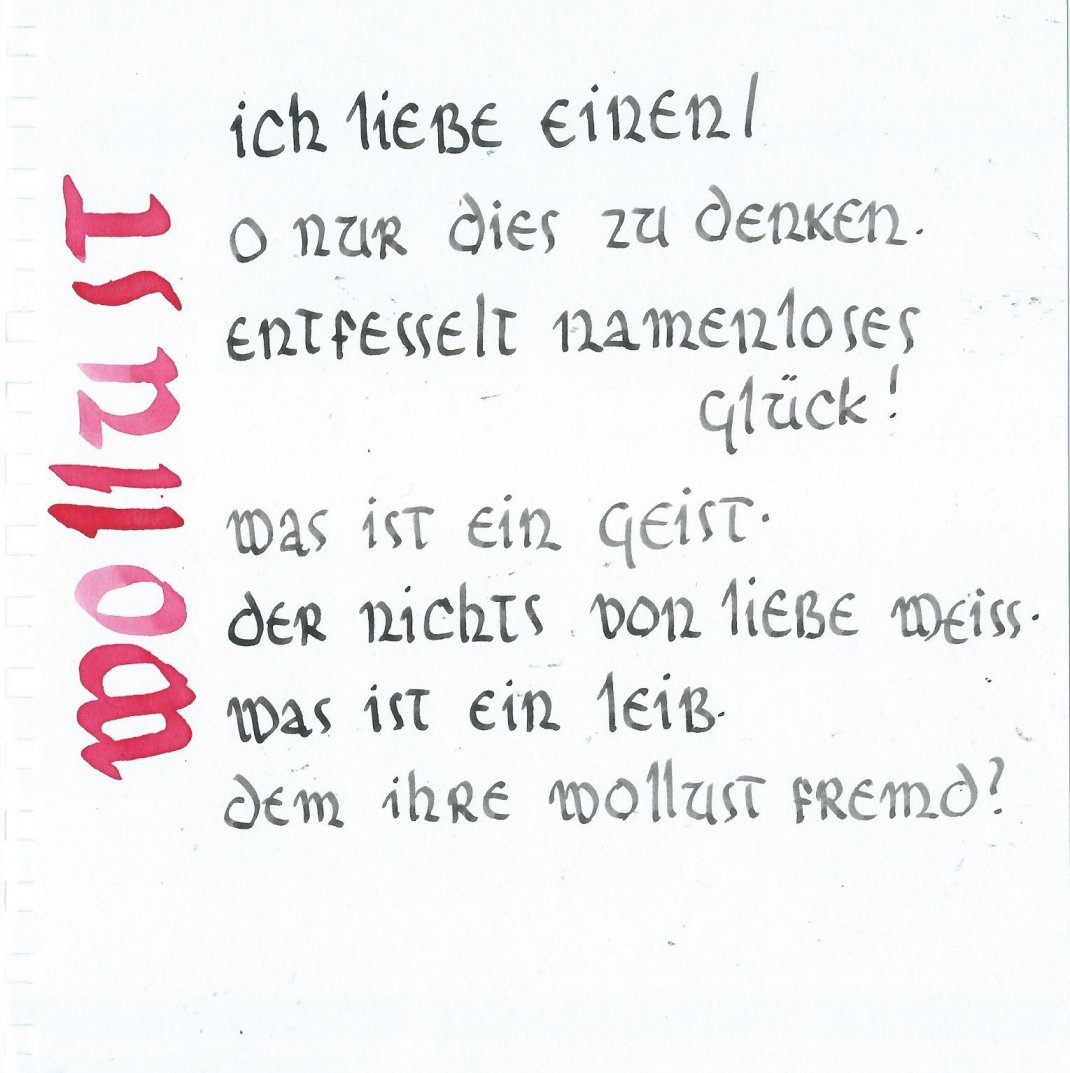 wollust
ich liebe einen/
o nur dies zu denken.
entfesselt namenloses
glück!
was ist ein geist.
der nichts von liebe weiss.
was ist ein leib.
dem ihre wollust fremd?